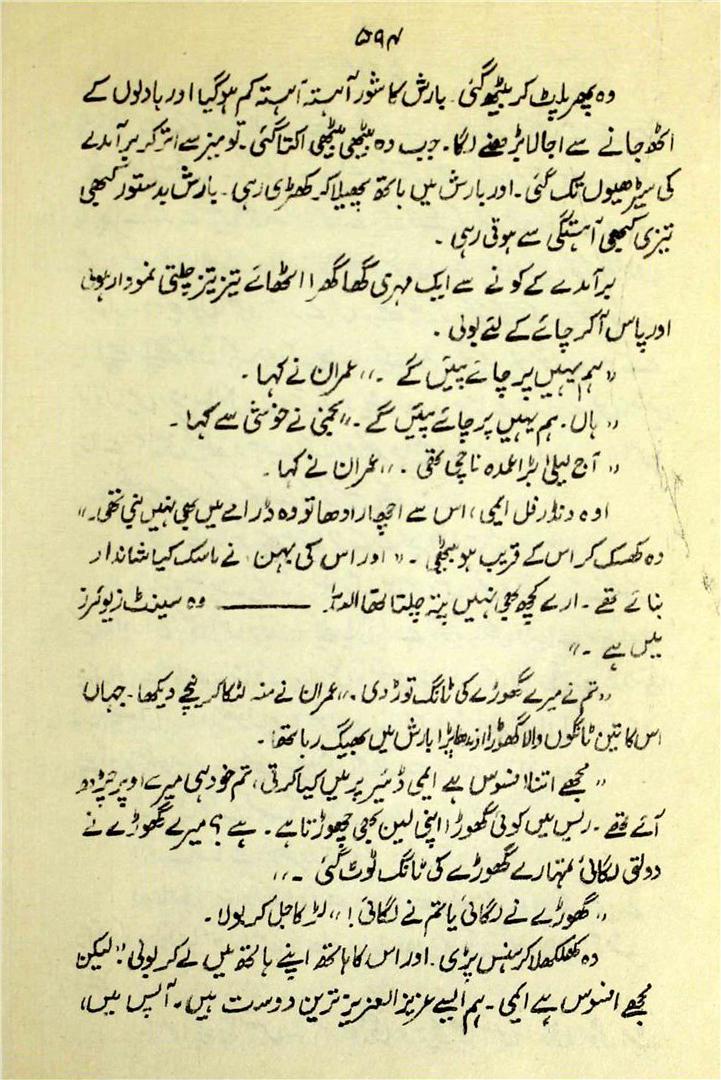 ۵۹۴
وہ پھر پلٹ کر بیٹھ گئی۔ بارش کا شور آہستہ آہستہ کم ہو گیا اور بادلوں کے
اٹھ جانے سے اجالا بڑھنے لگا۔ جب وہ بیٹھی بیٹھی اکتا گئی۔ تو میز سے اتر کر برآمدے
کی سیڑھیوں تک گئی۔ اور بارش میں ہاتھ پھیلا کر کھڑی رہی۔ بارش بدستور کبھی
تیزی کبھی آہستگی سے ہوتی رہی۔
برآمدے کے کونے سے ایک مہری گھاگھرا اٹھائے تیز تیز چلتی نمودار ہوئی
اور پاس آ کر چائے کے لئے بولی۔
”ہم یہیں پر چائے پیئں گے۔“ عمران نے کہا۔
”ہاں۔ ہم یہیں پر چائے پیئں گے۔“ نجمی نے خوشی سے کہا۔
”آج لیلیٰ بڑا عمدہ ناچی تھی۔“ عمران نے کہا۔
اوہ ونڈرفل ایمی، اس سے اچھا رادھا تو وہ ڈرامے میں بھی نہیں بنی تھی۔“
وہ کھسک کر اس کے قریب ہو بیٹھی۔ ”اور اس کی بہن نے ماسک کیا شاندار
بنائے تھے۔ ارے کچھ بھی نہیں پتہ چلتا تھا اللہ ۔ ——— وہ سینٹ زیوئرز
میں ہے۔“
”تم نے میرے گھوڑے کی ٹانگ توڑ دی۔“ عمران نے منہ لٹکا کر نیچے دیکھا۔ جہاں
اس کا تین ٹانگوں والا گھوڑا اوندھا پڑا بارش میں بھیگ رہا تھا۔
”مجھے اتنا افسوس ہے ایمی ڈئیر پر میں کیا کرتی، تم خود ہی میرے اوپر چڑھ
آئے تھے۔ ریس میں کوئی گھوڑا اپنی لین بھی چھوڑتا ہے۔ ہے؟ میرے گھوڑے نے
دولتی لگائی تمہارے گھوڑے کی ٹانگ ٹوٹ گئی۔“
”گھوڑے نے لگائی یا تم نے لگائی!“ لڑکا جل کر بولا۔
وہ کھلکھلا کر ہنس پڑی۔ اور اس کا ہاتھ اپنے ہاتھ میں لے کر بولی: ”لیکن
مجھے افسوس ہے ایمی۔ ہم ایسے عزیز العزیز ترین دوست ہیں۔ آپس میں،